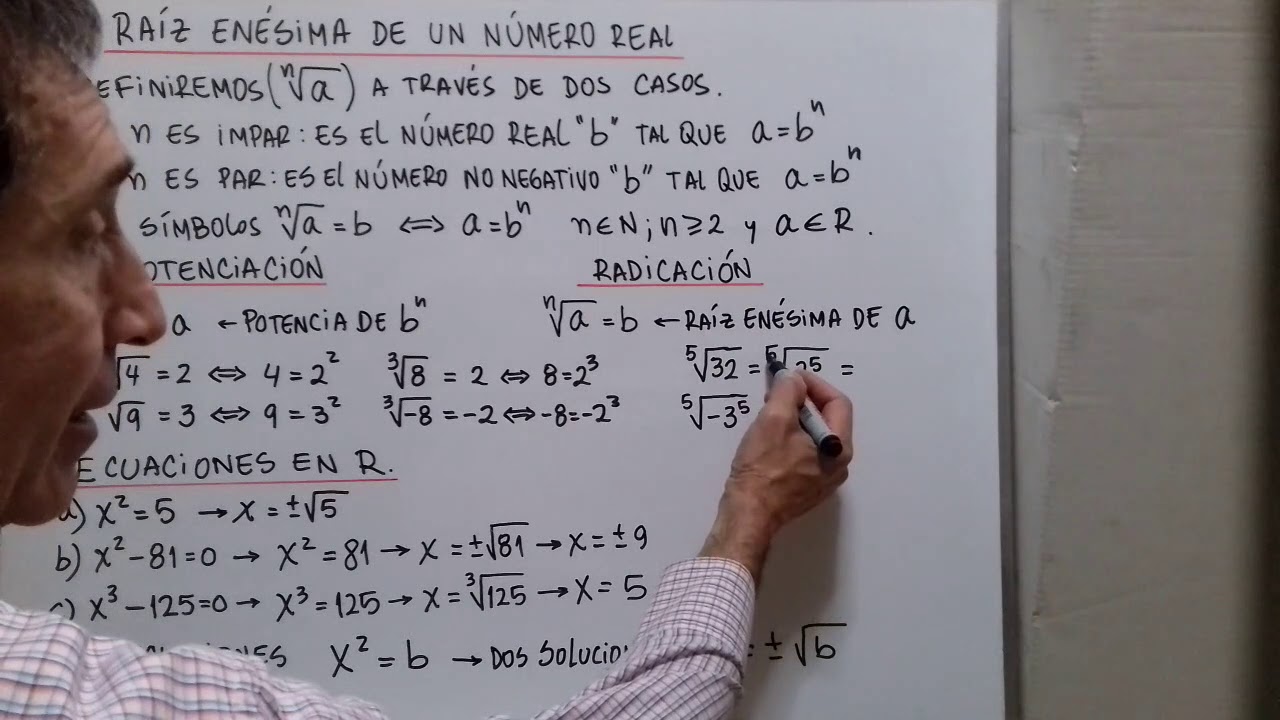 RAÍZ ENÉSIMA DE UN NÚMERO REAL
EFINIREMOS (ⁿ√a) A TRAVÉS DE DOS CASOS.
n ES IMPAR: ES EL NÚMERO REAL "b" TAL QUE a = bⁿ
n ES PAR: ES El NÚMERO NO NEGATIVO "b" TAL QUE a = bⁿ
SÍMBOLOS ⁿ√a = b ⟺ a = bⁿ n ∈ N; n ≥ 2 y a ∈ R.
OTENCIACIÓN RADICACIÓN
a ← POTENCIA DE bⁿ ⁿ√a = b ← RAÍZ ENÉSIMA DE a
√4 = 2 ⟺ 4 = 2² ³√8 = 2 ⟺ 8 = 2³ ⁵√32 = ⁵√2⁵ =
√9 = 3 ⟺ 9 = 3² ³√-8 = -2 ⟺ -8 = -2³ ⁵√-3⁵
ECUACIONES EN R.
a) x² = 5 → x = ±√5
b) x² - 81 = 0 → x² = 81 → x = ±√81 → x = ±9
c) x³ - 125 = 0 → x³ = 125 → x = ³√125 → x = 5
x² = b → DOS SOLUCIO = ±√b